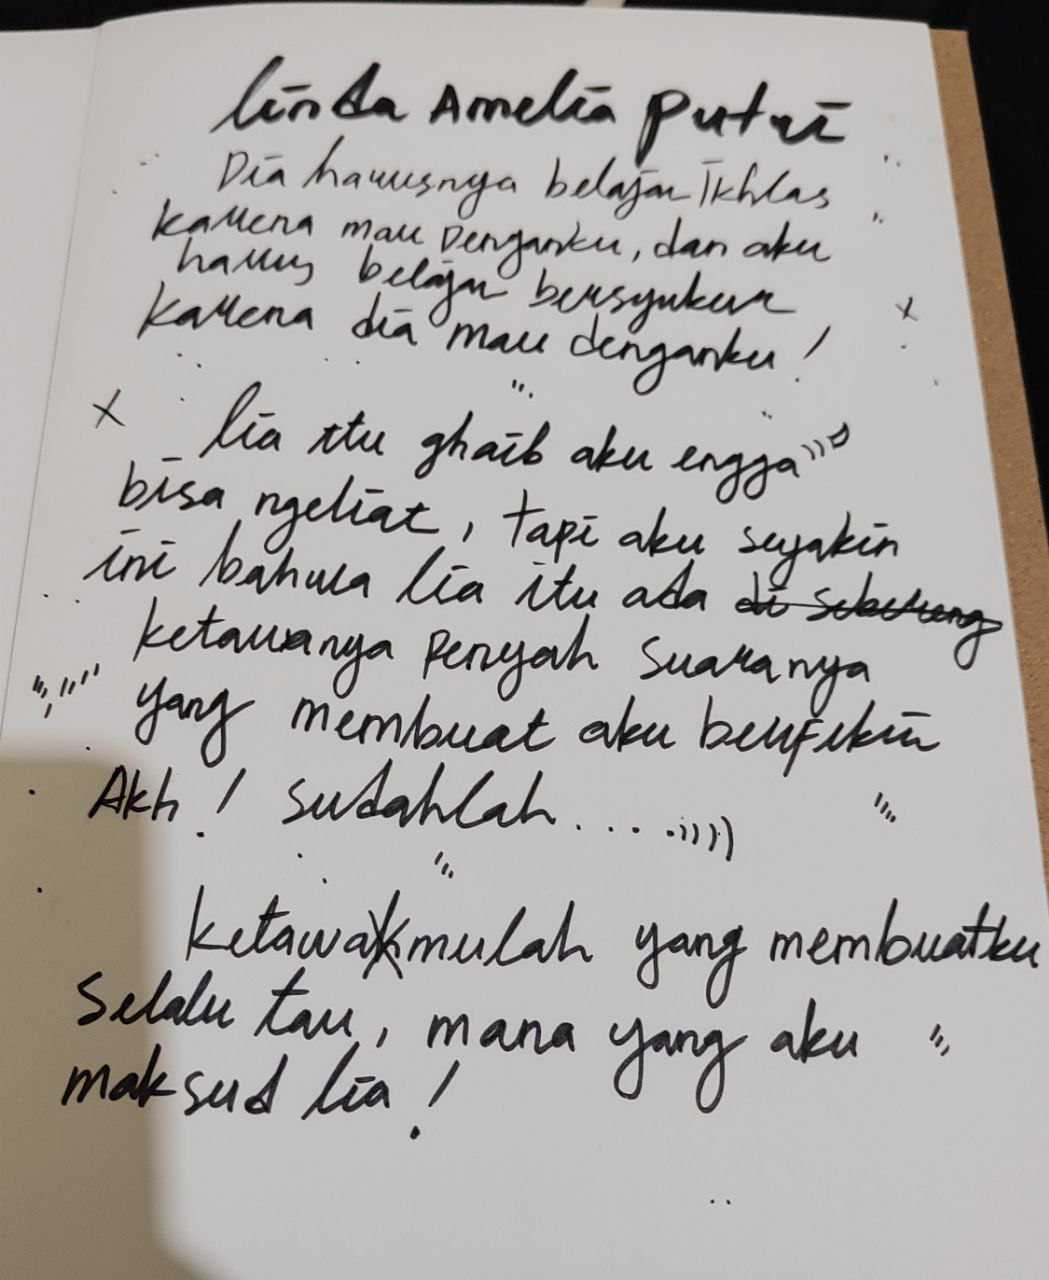 Linda Amelia Putri
Dia harusnya belajar Ikhlas
karena mau Denganku, dan aku
harus belajar bersyukur
karena dia mau denganku!
lia itu ghaib aku engga
bisa ngeliat, tapi aku seyakin
ini bahwa lia itu ada di seberang
ketawanya renyah suaranya
yang membuat aku berfikir
Akh! sudahlah.....))))
ketawakmulah yang membuatku
Selalu tau, mana yang aku
maksud lia!